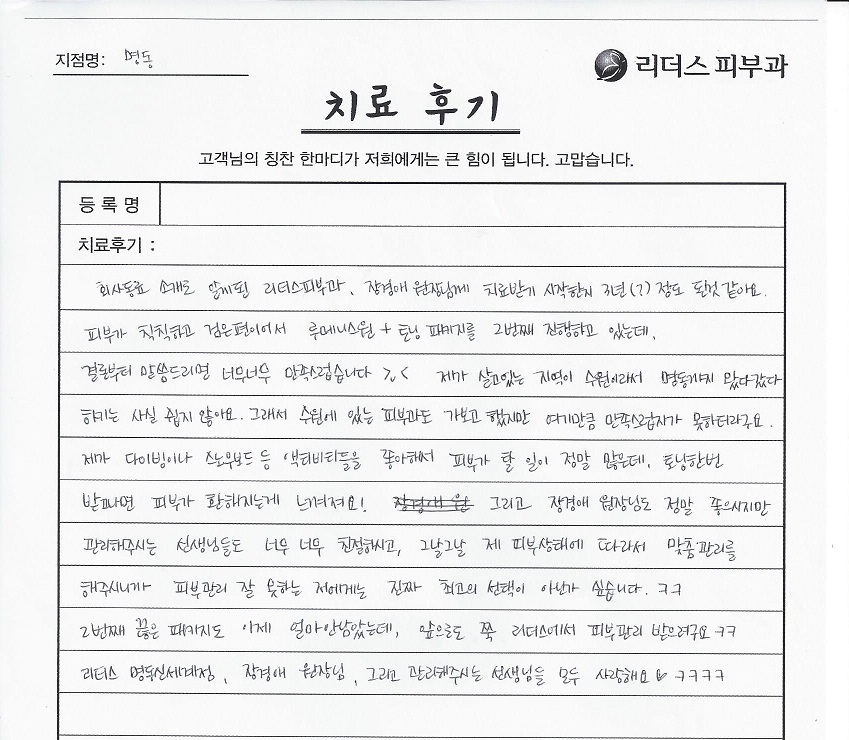 지점명: 명동
리더스 피부과
치료 후기
고객님의 칭찬 한마디가 저희에게는 큰 힘이 됩니다. 고맙습니다.
등 록 명
치료후기 :
회사동료 소개로 알게된 리더스피부과, 장경애 원장님께 치료받기 시작한지 3년(?) 정도 된것 같아요.
피부가 칙칙하고 검은편이어서 루메니스원 + 토닝 패키지를 2번째 진행하고 있는데,
결론부터 말씀드리면 너무너무 만족스럽습니다 >.< 제가 살고있는 지역이 수원이라서 명동까지 왔다갔다
하기는 사실 쉽지 않아요. 그래서 수원에 있는 피부과도 가보고 했지만 여기만큼 만족스럽지가 못하더라구요.
제가 다이빙이나 스노우보드 등 액티비티들을 좋아해서 피부가 탈 일이 정말 많은데, 토닝한번
받고나면 피부가 환해지는게 느껴져요! 장경애 원 그리고 장경애 원장님도 정말 좋으시지만
관리해주시는 선생님들도 너무 너무 친절하시고, 그날그날 제 피부상태에 따라서 맞춤관리를
해주시니까 피부관리 잘 못하는 저에게는 진짜 최고의 선택이 아닌가 싶습니다. ㅋㅋ
2번째 끊은 패키지도 이제 얼마안남았는데, 앞으로도 쭉 리더스에서 피부관리 받으려구요 ㅋㅋ
리더스 명동신세계점, 장경애 원장님, 그리고 관리해주시는 선생님들 모두 사랑해요♡ ㅋㅋㅋㅋ